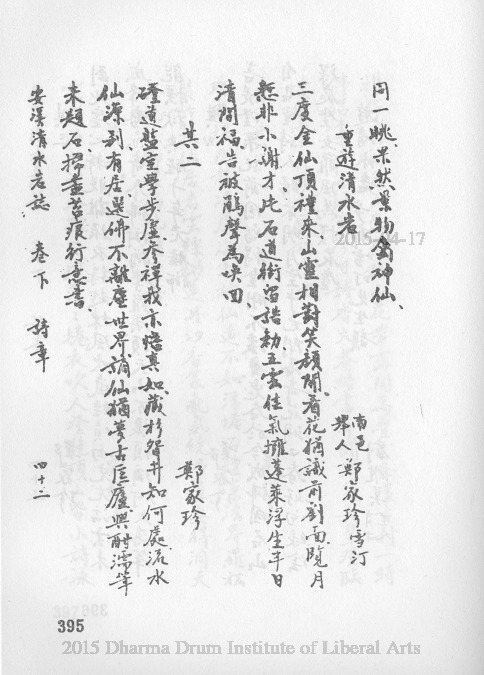 同一眺、果然景物會神仙、
重遊清水岩
南邑舉人 鄭家珍雪汀
三度金仙頂禮來山靈相對笑顏開、看花猶識前劉面覽月
慙非小謝才、叱石道銜留誥勅五雲佳氣擁蓬萊浮生半日
清閒福告被鵑聲為喚回、
其二
鄭家珍
磴道盤空學步虛參禪我亦悟真如藏杉智井知何處流水
仙源別有居選佛不離塵世界誦仙猶夢古匡廬興酣濡筆
未題石掃盡苔痕行意書、
安溪清水岩誌 卷下 詩章
四十二
395
2015-04-17
2015 Dharma Drum Institute of Liberal Arts